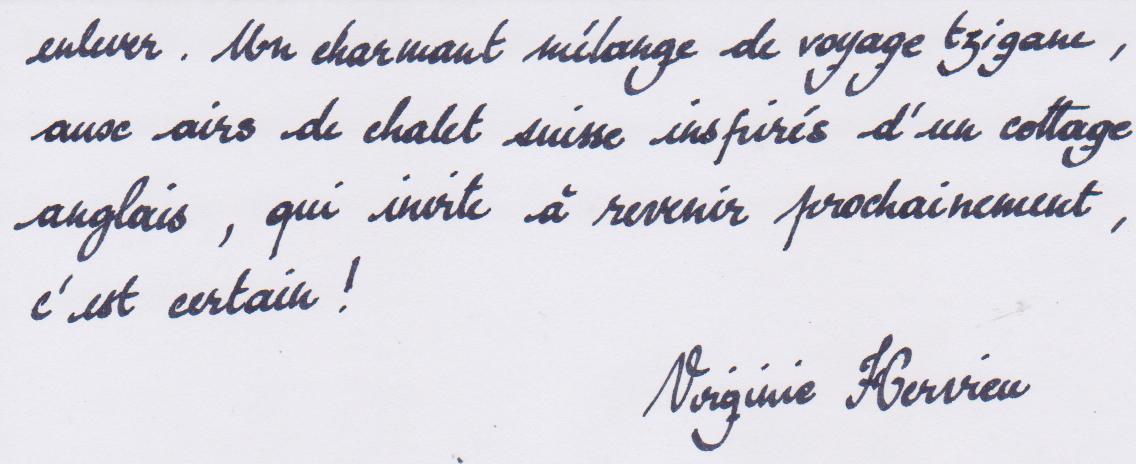 enlever. Un charmant mélange de voyage tzigane,
aux airs de chalet suisse inspirés d'un cottage
anglais, qui invite à revenir prochainement,
c'est certain !
Virginie Hervieu